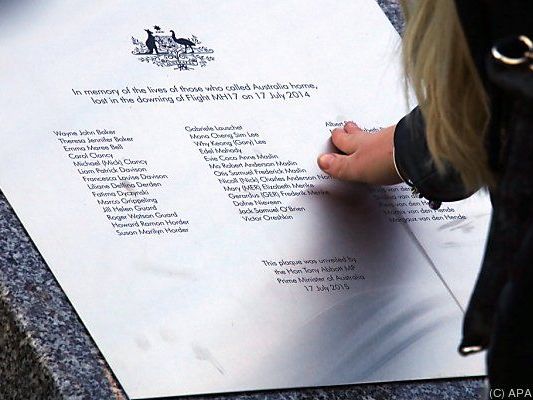 In memory of the lives of those who called Australia home,
lost in the downing of Flight MH17 on 17 July 2014
Wayne John Baker
Theresa Jennifer Baker
Emma Maree Bell
Carol Clancy
Michael (Mick) Clancy
Liam Patrick Davison
Francesca Louise Davison
Liliane Delfina Derden
Fatima Dyczynski
Marco Grippeling
Jill Helen Guard
Roger Watson Guard
Howard Ramon Horder
Susan Marilyn Horder
Gabriele Lauschet
Mona Cheng Sim Lee
Why Keong (Gary) Lee
Edel Mahady
Evie Coco Anne Maslin
Mo Robert Anderson Maslin
Otis Samuel Frederick Maslin
Nicoll (Nick) Charles Anderson
Mary (MER) Elizabeth Menke
Gerardus (GER) Frederik Menke
Dafne Nieveen
Jack Samuel O'Brien
Victor Oreshkin
Albert
van den Hende
van den Hende
This plaque was unveiled by
the Hon Tony Abbott MP
Prime Minister of Australia
17 July 2015
(C) APA